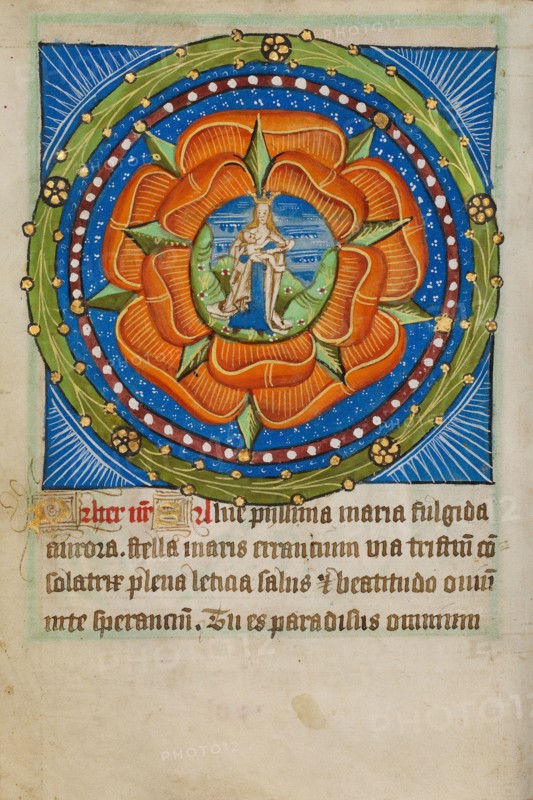 Pater nr̄ Aue piissima maria fulgida
aurora. stella maris errantium via tristiū cō
solatrix plena leticia salus ⁊ beatitudo oīm̄
in te speranciū. Tu es paradisus omnium
PHOTO12